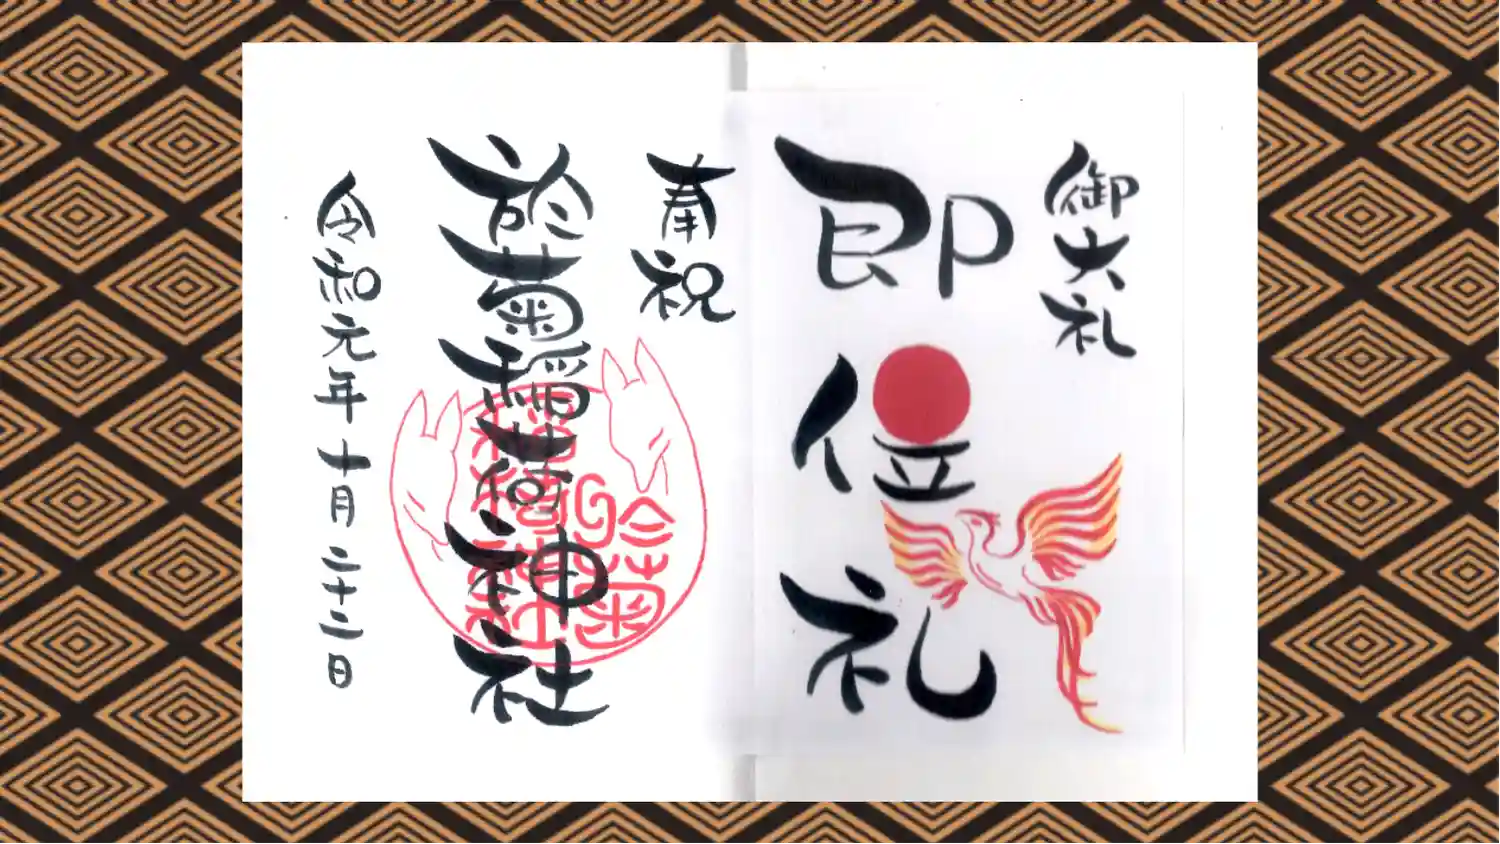 御大礼
即位礼
奉祝
於菊稲荷神社
令和元年十月二十二日
於菊
稲荷
神社